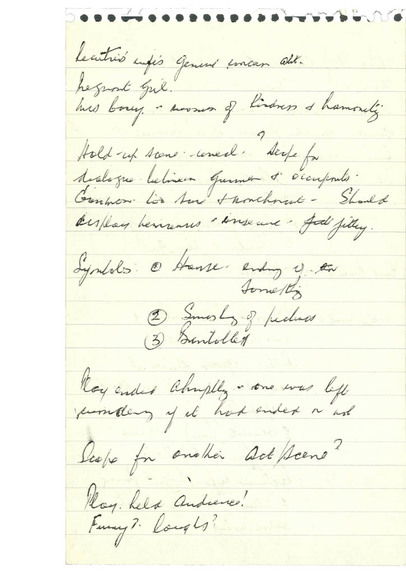 wife's genuine concern abt.
Pregnant Girl.
Mrs - woman of Kindness & humanity
Hold-up scene - unreal. ? Scope for
dialogue between gunmen & occupants.
Gunmen too & nonchalant - Should
display nervous - - jittery.
Symbols: ① House - ending of
Something
② Smashing of pictures
③
Play ended abruptly - one was left
wondering if it had ended or not
Scope for another Act/Scene?
Play held Audience!
Funny? laughs?